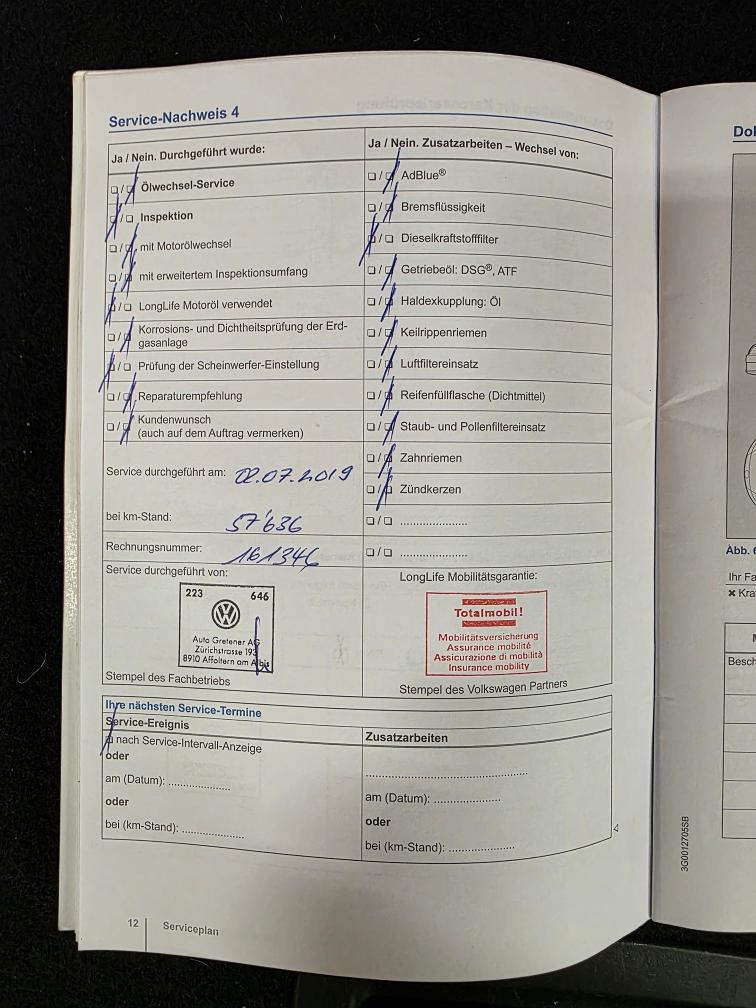 Service-Nachweis 4
Ja / Nein. Durchgeführt wurde:
❏ / ❏ Ölwechsel-Service
❏ / ❏ Inspektion
❏ / ❏ mit Motorölwechsel
❏ / ❏ mit erweitertem Inspektionsumfang
❏ / ❏ LongLife Motoröl verwendet
❏ / ❏ Korrosions- und Dichtheitsprüfung der Erd-
gasanlage
❏ / ❏ Prüfung der Scheinwerfer-Einstellung
❏ / ❏ Reparaturempfehlung
❏ / ❏ Kundenwunsch
(auch auf dem Auftrag vermerken)
Service durchgeführt am: 02.07.2019
bei km-Stand: 57'636
Rechnungsnummer: 161346
Service durchgeführt von:
223 646
Auto Gretener AG
Zürichstrasse 193
8910 Affoltern am Albis
Stempel des Fachbetriebs
Ja / Nein. Zusatzarbeiten – Wechsel von:
❏ / ❏ AdBlue®
❏ / ❏ Bremsflüssigkeit
❏ / ❏ Dieselkraftstofffilter
❏ / ❏ Getriebeöl: DSG®, ATF
❏ / ❏ Haldexkupplung: Öl
❏ / ❏ Keilrippenriemen
❏ / ❏ Luftfiltereinsatz
❏ / ❏ Reifenfüllflasche (Dichtmittel)
❏ / ❏ Staub- und Pollenfiltereinsatz
❏ / ❏ Zahnriemen
❏ / ❏ Zündkerzen
❏ / ❏ .....................
❏ / ❏ .....................
LongLife Mobilitätsgarantie:
Totalmobil!
Mobilitätsversicherung
Assurance mobilité
Assicurazione di mobilità
Insurance mobility
Stempel des Volkswagen Partners
Ihre nächsten Service-Termine
Service-Ereignis
❏ nach Service-Intervall-Anzeige
oder
am (Datum): ...................
oder
bei (km-Stand): ...................
Zusatzarbeiten
..................................................
am (Datum): ....................
oder
bei (km-Stand): ....................
4
12 Serviceplan
3G0012705SB
Dol
Abb. 6
Ihr Fa
✖ Kra
Besch